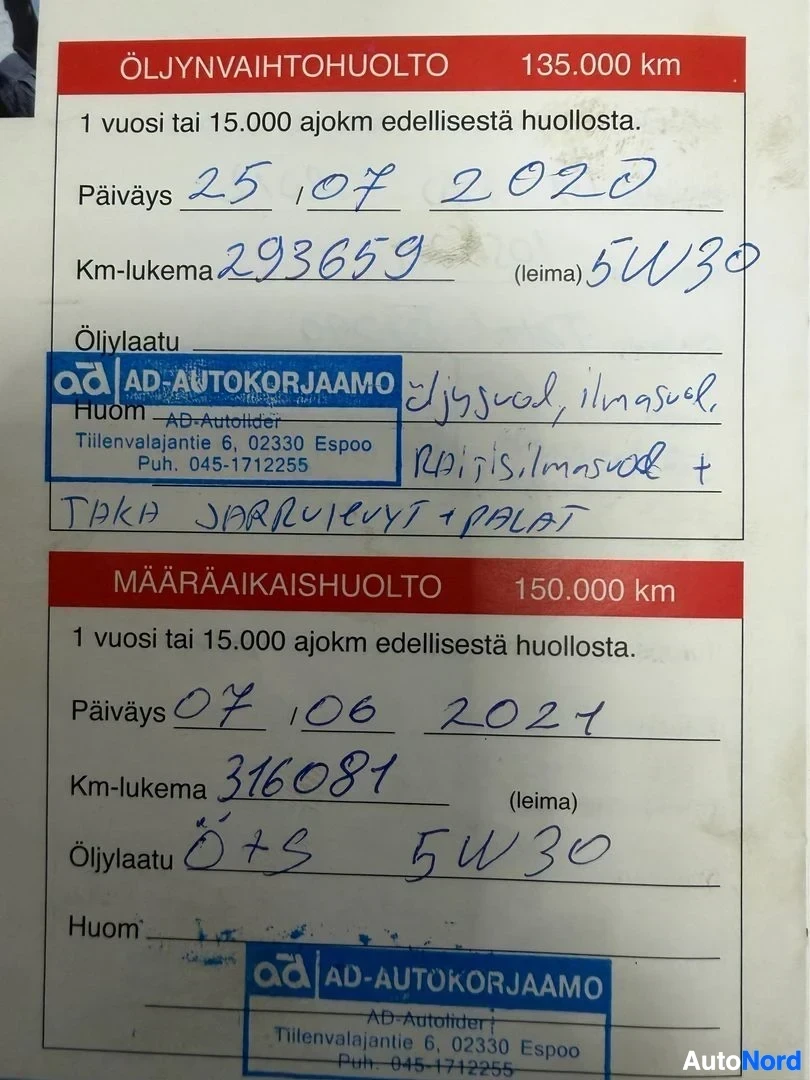 ÖLJYNVAIHTOHUOLTO 135.000 km
1 vuosi tai 15.000 ajokm edellisestä huollosta.
Päiväys 25 / 07 2020
Km-lukema 293659 (leima) 5W30
Öljylaatu
ad AD-AUTOKORJAAMO öljysuod, ilmasuod,
Huom AD-Autolider
Tiilenvalajantie 6, 02330 Espoo
Puh. 045-1712255 RAITISilmasuod +
TAKA JARRULEVYT + PALAT
MÄÄRÄAIKAISHUOLTO 150.000 km
1 vuosi tai 15.000 ajokm edellisestä huollosta.
Päiväys 07 / 06 2021
Km-lukema 316081 (leima)
Öljylaatu Ö+S 5W30
Huom
ad AD-AUTOKORJAAMO
AD-Autolider
Tiilenvalajantie 6, 02330 Espoo
Puh. 045-1712255
AutoNord